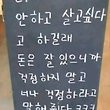 안하고 살고싶다
고 하길래
돈은 잘 있으니까
걱정하지 말고
너나 걱정하라고
말해줬다 ㅋㅋㅋ